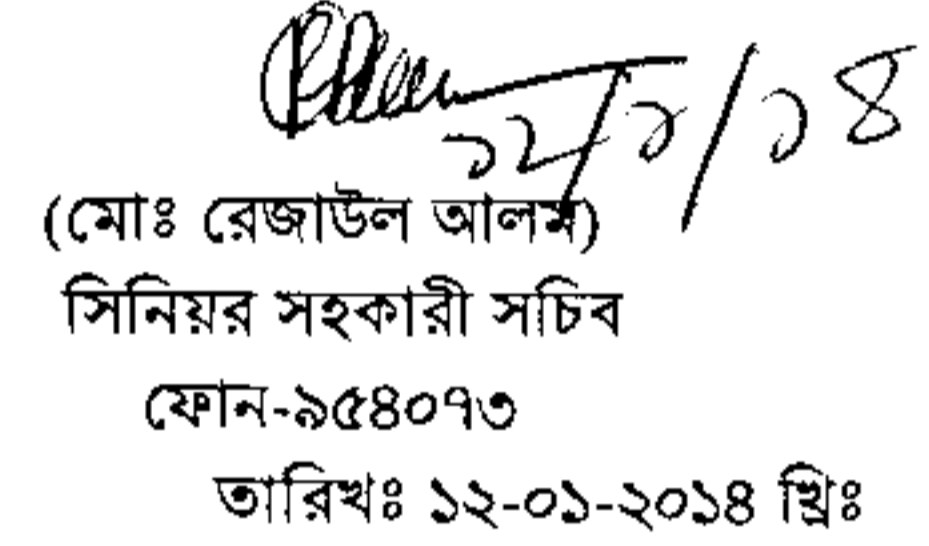 ১২/১/১৪
(মোঃ রেজাউল আলম)
সিনিয়র সহকারী সচিব
ফোন-৯৫৪০৭৩
তারিখঃ ১২-০১-২০১৪ খ্রিঃ